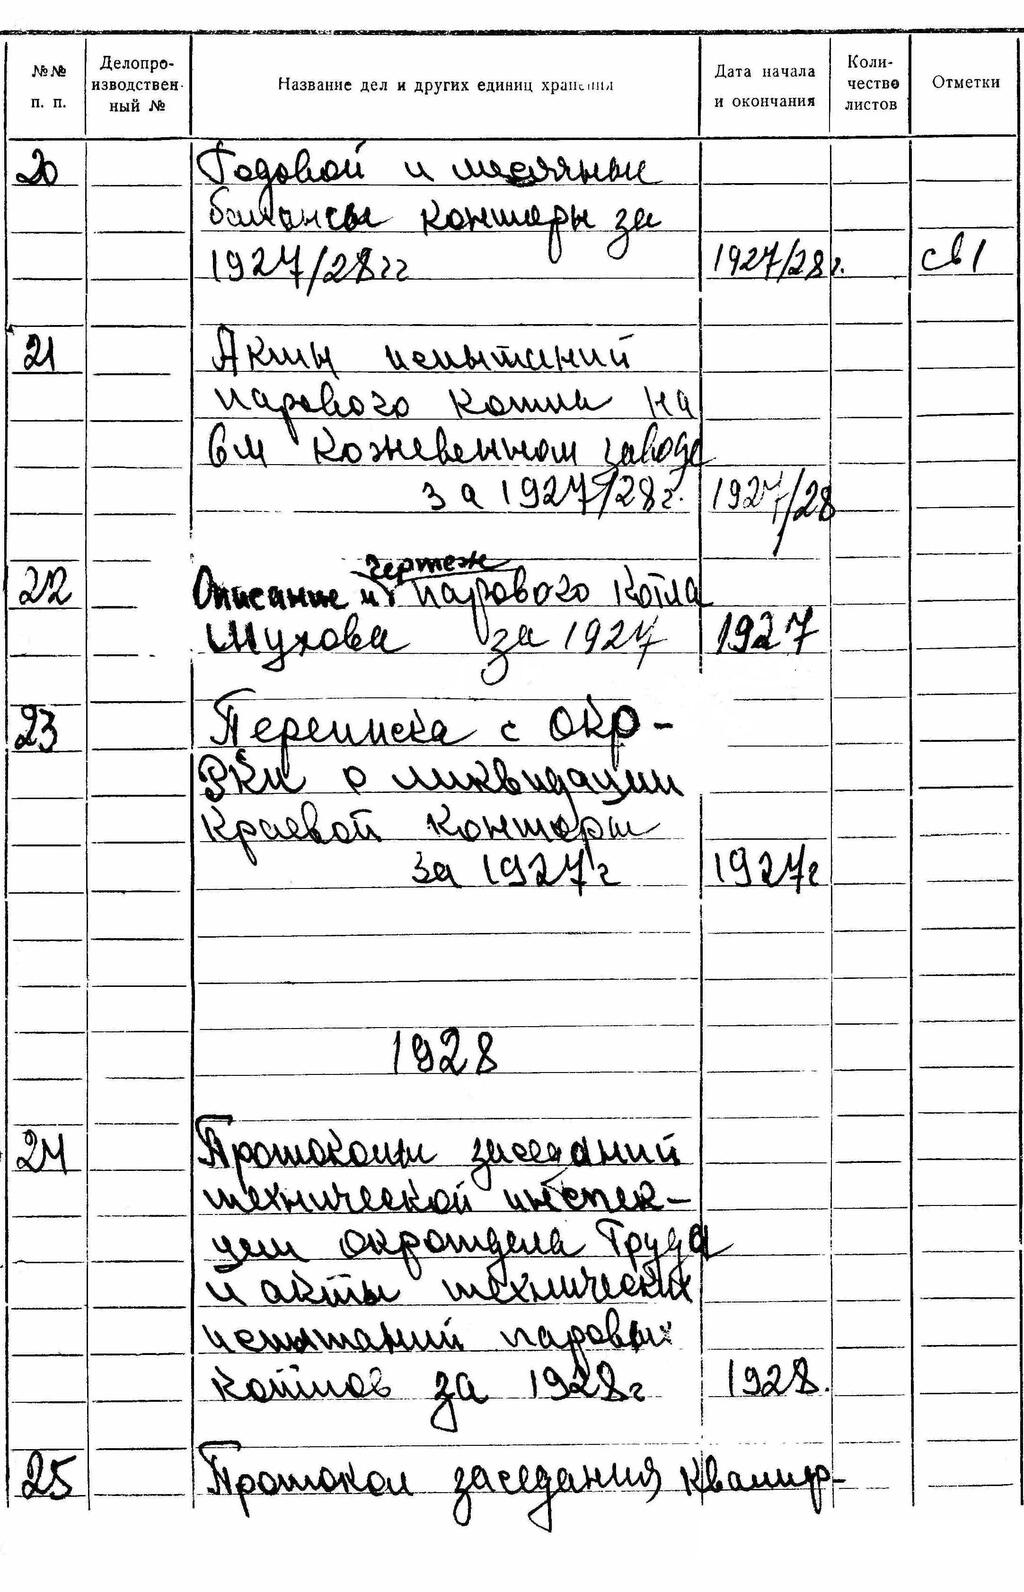 №№ п. п.
Делопро-изводствен-ный №
Название дел и других единиц хранения
Дата начала и окончания
Коли-чество листов
Отметки
20 Годовой и месячные
балансы конторы за
1927/28гг 1927/28г. св 1
21 Акты испытаний
парового котла на
6м Кожевенном заводе
за 1927/28г. 1927/28
чертеж
22 Описание и парового котла
Шухова за 1927 1927
23 Переписка с ОКР-
РКИ о ликвидации
Краевой конторы
за 1927г 1927г
1928
24 Протоколы заседаний
технической инспек-
ции окротдела Труда
и акты технических
испытаний паровых
котлов за 1928г 1928.
25 Протокол заседания квалиф-